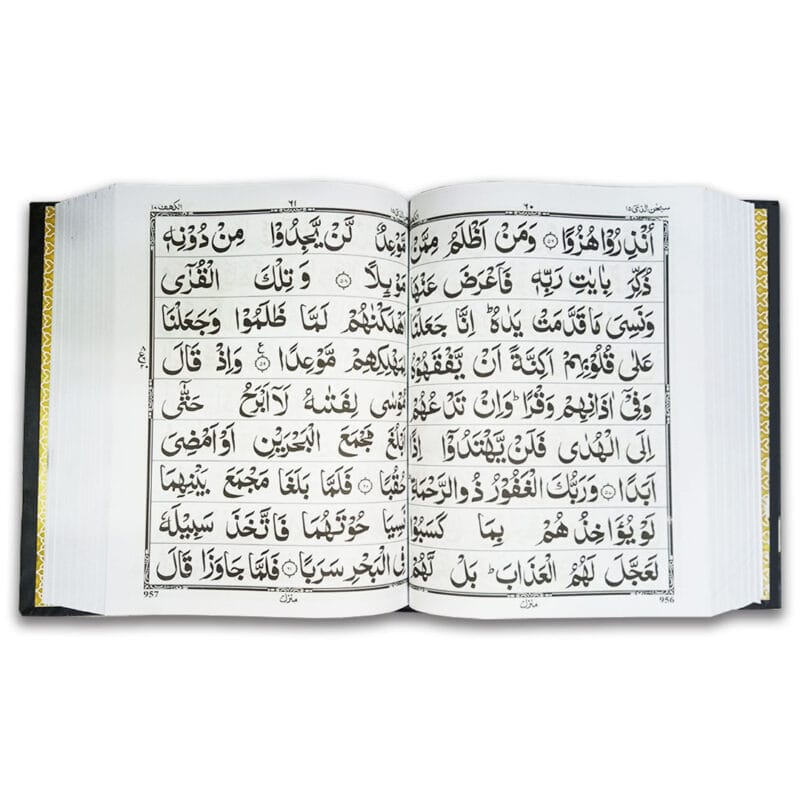 سبحن الذی ۱۵
٦٠
اُنْذِرُوْا هُزُوًا ۝٥٦ وَمَنْ اَظْلَمُ مِمَّنْ
ذُكِّرَ بِاٰيٰتِ رَبِّهٖ فَاَعْرَضَ عَنْهَا
وَنَسِیَ مَا قَدَّمَتْ يَدٰهُ ؕ اِنَّا جَعَلْنَا
عَلٰی قُلُوْبِهِمْ اَكِنَّةً اَنْ يَّفْقَهُوْهُ
وَفِیْۤ اٰذَانِهِمْ وَقْرًا ؕ وَاِنْ تَدْعُهُمْ
اِلَی الْهُدٰی فَلَنْ يَّهْتَدُوْۤا اِذًا
اَبَدًا ۝٥٧ وَرَبُّكَ الْغَفُوْرُ ذُوالرَّحْمَةِ ؕ
لَوْ يُؤَاخِذُهُمْ بِمَا كَسَبُوْا
لَعَجَّلَ لَهُمُ الْعَذَابَ ؕ بَلْ لَّهُمْ
منزل
956
٦١
الكهف ١٨
مَّوْعِدٌ لَّنْ يَّجِدُوْا مِنْ دُوْنِهٖ
مَوْئِلًا ۝٥٨ وَتِلْكَ الْقُرٰۤی
اَهْلَكْنٰهُمْ لَمَّا ظَلَمُوْا وَجَعَلْنَا
لِمَهْلِكِهِمْ مَّوْعِدًا ۝٥٩ ع وَاِذْ قَالَ
مُوْسٰی لِفَتٰىهُ لَاۤ اَبْرَحُ حَتّٰۤی
اَبْلُغَ مَجْمَعَ الْبَحْرَيْنِ اَوْ اَمْضِیَ
حُقُبًا ۝٦٠ فَلَمَّا بَلَغَا مَجْمَعَ بَيْنِهِمَا
نَسِيَا حُوْتَهُمَا فَاتَّخَذَ سَبِيْلَهٗ
فِی الْبَحْرِ سَرَبًا ۝٦١ فَلَمَّا جَاوَزَا قَالَ
منزل
957